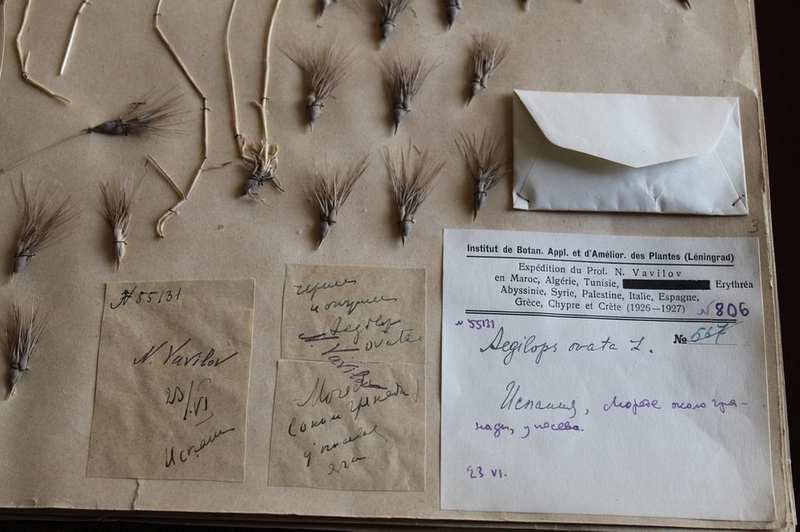 № 55131
N. Vavilov
23/VI
Испания
черные
и опушен
Aegilops
ovata
Vavilov
у посева
Institut de Botan. Appl. et d'Amélior. des Plantes (Léningrad)
Expédition du Prof. N. Vavilov
en Maroc, Algérie, Tunisie, Erythréa
Abyssinie, Syrie, Palestine, Italie, Espagne,
Grèce, Chypre et Crète (1926—1927)
N 806
N 55131
№ 667
Aegilops ovata L.
Испания, Мореда около Гра-
нады, у посева.
23 VI.
3